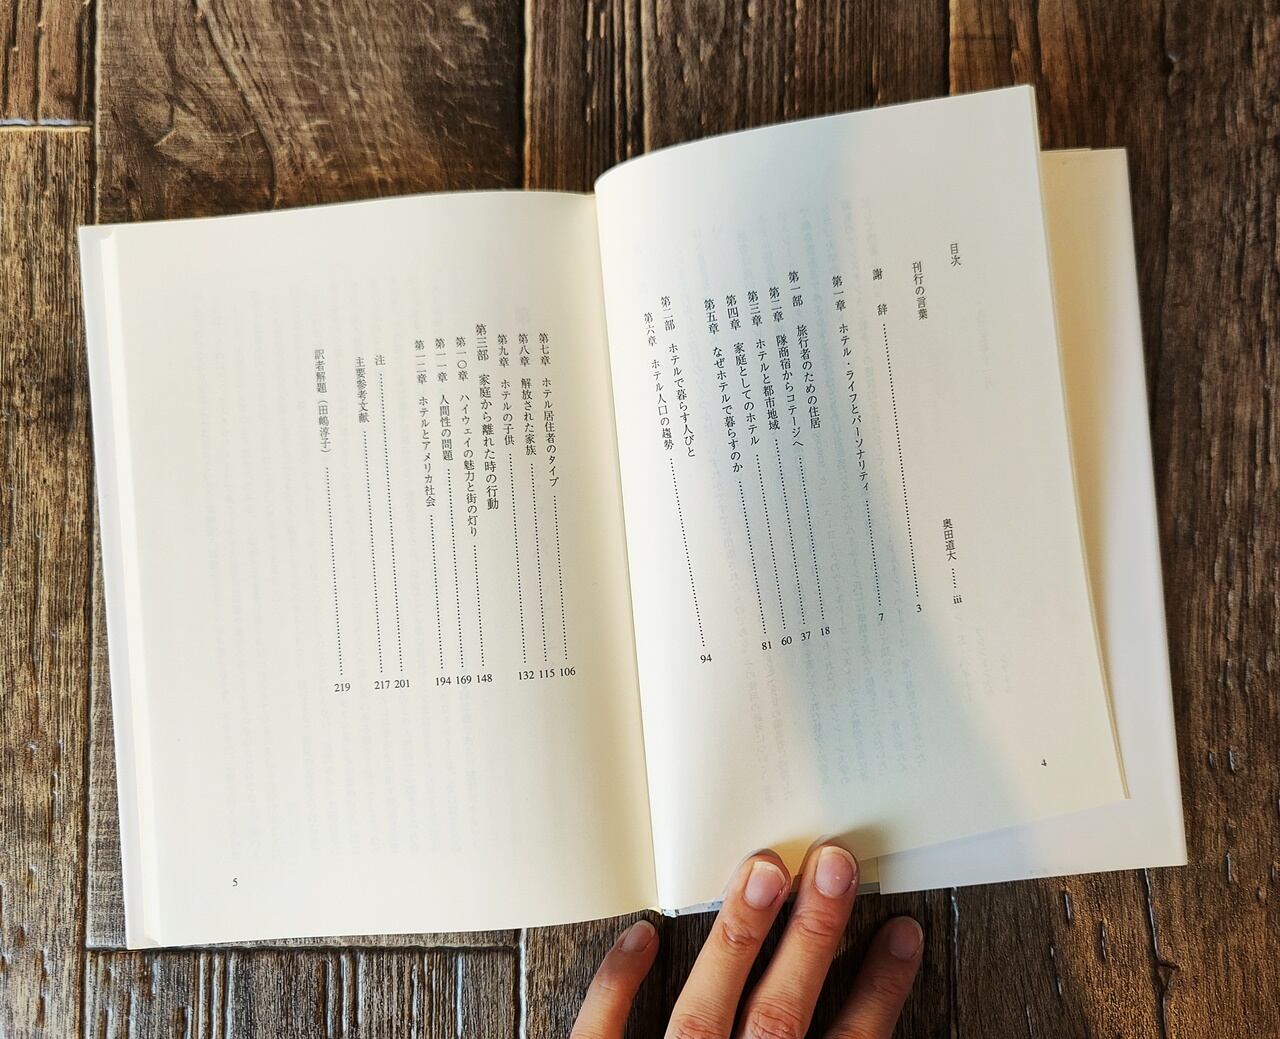 目次
刊行の言葉 奥田道大 …… iii
謝 辞 …… 3
第一章 ホテル・ライフとパーソナリティ …… 7
第一部 旅行者のための住居
第二章 隊商宿からコテージへ …… 18
第三章 ホテルと都市地域 …… 37
第四章 家庭としてのホテル …… 60
第五章 なぜホテルで暮らすのか …… 81
第二部 ホテルで暮らす人びと
第六章 ホテル人口の趨勢 …… 94
4
第七章 ホテル居住者のタイプ …… 106
第八章 解放された家族 …… 115
第九章 ホテルの子供 …… 132
第三部 家庭から離れた時の行動
第一〇章 ハイウェイの魅力と街の灯り …… 148
第一一章 人間性の問題 …… 169
第一二章 ホテルとアメリカ社会 …… 194
注 …… 201
主要参考文献 …… 217
訳者解題（田嶋淳子） …… 219
5